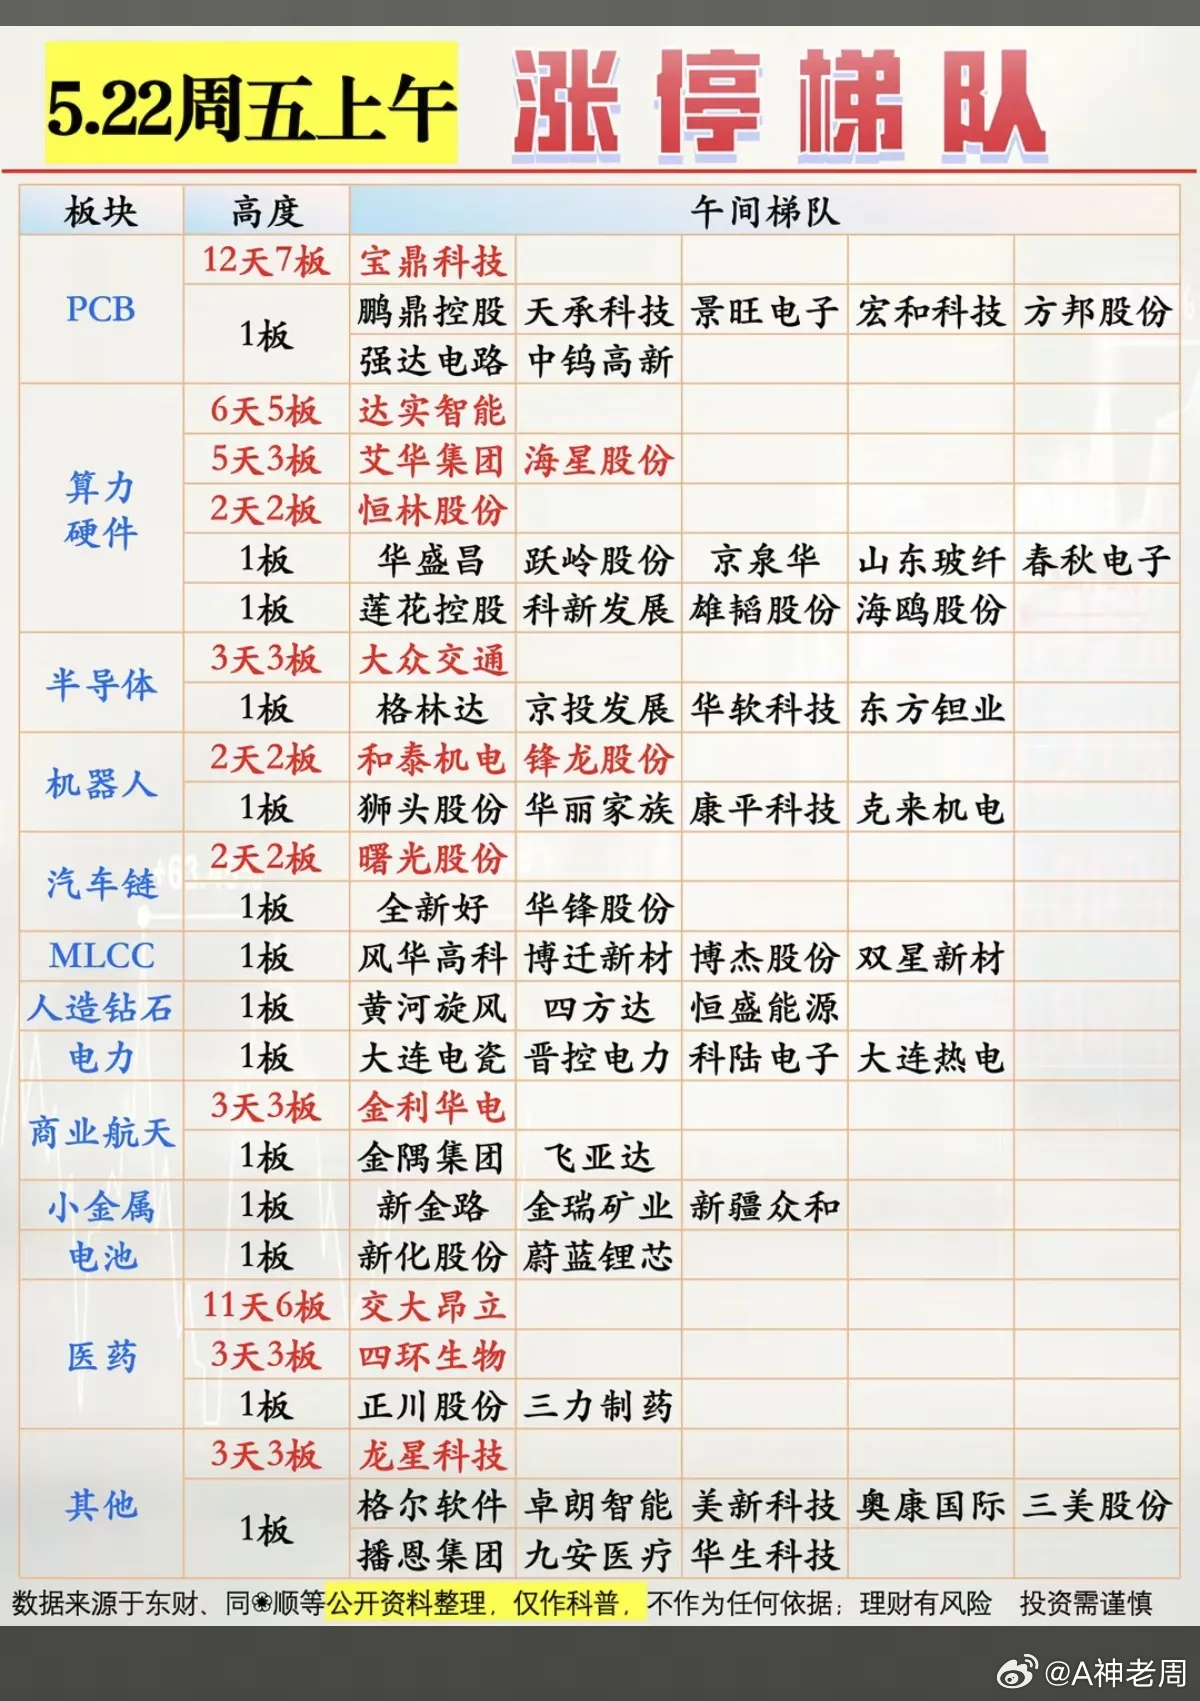 5.22周五上午 涨停梯队
板块 高度 午间梯队
PCB
12天7板 宝鼎科技
1板 鹏鼎控股 天承科技 景旺电子 宏和科技 方邦股份
强达电路 中钨高新
算力硬件
6天5板 达实智能
5天3板 艾华集团 海星股份
2天2板 恒林股份
1板 华盛昌 跃岭股份 京泉华 山东玻纤 春秋电子
1板 莲花控股 科新发展 雄韬股份 海鸥股份
半导体
3天3板 大众交通
1板 格林达 京投发展 华软科技 东方钽业
机器人
2天2板 和泰机电 锋龙股份
1板 狮头股份 华丽家族 康平科技 克来机电
汽车链
2天2板 曙光股份
1板 全新好 华锋股份
MLCC 1板 风华高科 博迁新材 博杰股份 双星新材
人造钻石 1板 黄河旋风 四方达 恒盛能源
电力 1板 大连电瓷 晋控电力 科陆电子 大连热电
商业航天
3天3板 金利华电
1板 金隅集团 飞亚达
小金属 1板 新金路 金瑞矿业 新疆众和
电池 1板 新化股份 蔚蓝锂芯
医药
11天6板 交大昂立
3天3板 四环生物
1板 正川股份 三力制药
其他
3天3板 龙星科技
1板 格尔软件 卓朗智能 美新科技 奥康国际 三美股份
播恩集团 九安医疗 华生科技
数据来源于东财、同❀顺等公开资料整理，仅作科普，不作为任何依据；理财有风险 投资需谨慎
@A神老周